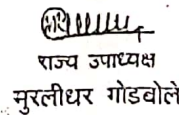 राज्य उपाध्यक्ष
मुरलीधर गोडबोले